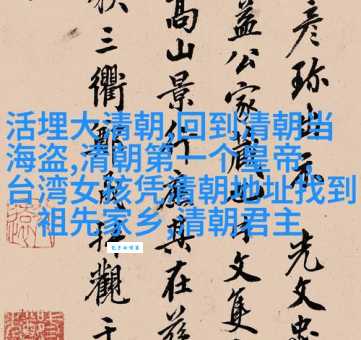 活埋大清朝,回到清朝当
海盗,清朝第一个皇帝,
台湾女孩凭清朝地址找到
祖先家乡,清朝君主
彦珍出示 先文忠
益公家藏
高山景行 其在
三衢 拜觀